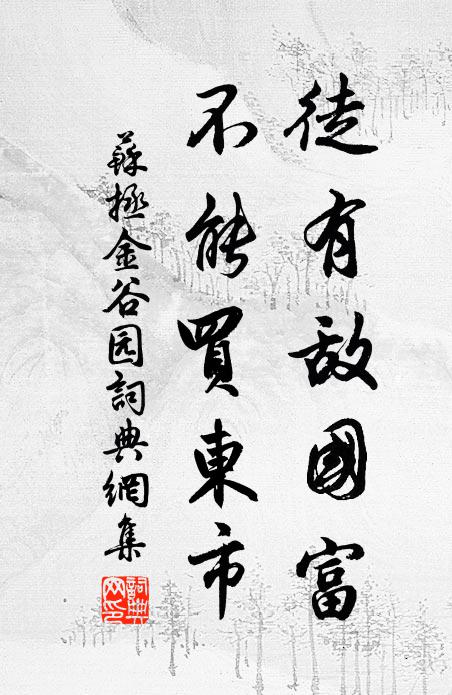 徒有敌國富
不能買東市
蘇拯金谷园詞典網集
詞典网印